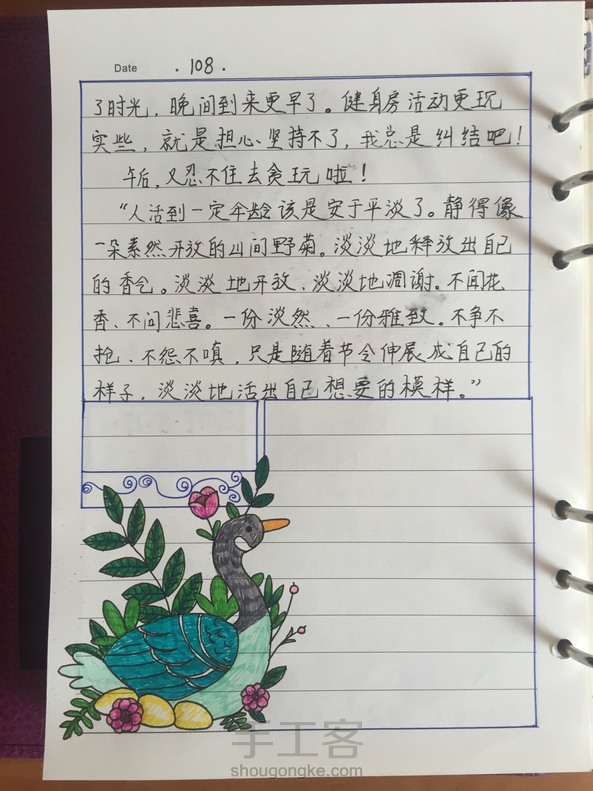 Date .108.
了时光，晚间到来更早了。健身房活动更现
实些，就是担心坚持不了，我总是纠结吧！
午后，又忍不住去贪玩啦！
“人活到一定年龄该是安于平淡了。静得像
一朵素然开放的山间野菊。淡淡地释放出自己
的香气。淡淡地开放、淡淡地凋谢。不闻花
香、不问悲喜。一份淡然、一份雅致。不争不
抢、不怨不嗔，只是随着节令伸展成自己的
样子，淡淡地活出自己想要的模样。”
手工客
shougongke.com